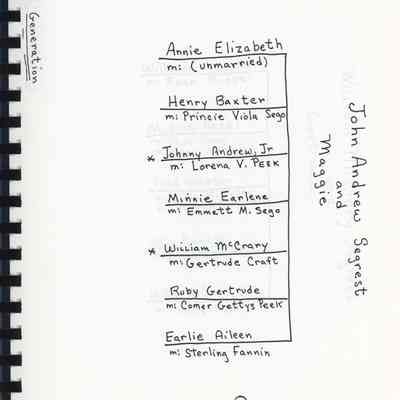 Generation
Annie Elizabeth
m: (unmarried)
Henry Baxter
m: Princie Viola Sego
* Johnny Andrew, Jr
m: Lorena V. Peek
Minnie Earlene
m: Emmett M. Sego
* William McCrary
m: Gertrude Craft
Ruby Gertrude
m: Comer Gettys Peek
Earlie Aileen
m: Sterling Fannin
John Andrew Segrest
and
Maggie